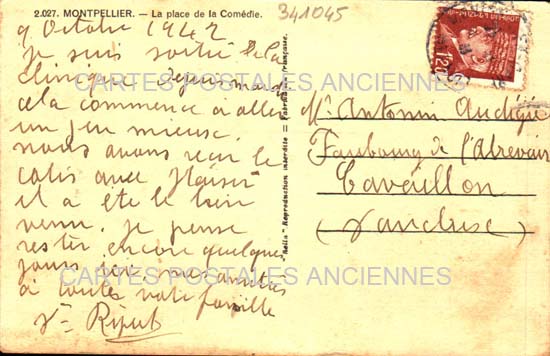 2.027. MONTPELLIER. — La place de la Comédie.
341045
9 Octobre 1942
je suis sortie de la
clinique depuis mardi
cela commence a aller
un peu mieux
nous avons reçu le
colis avec plaisir
il a été le bien
venu. je pense
rester encore quelques
jours ici mes amitiés
à toutes votre famille
Vve Ripert
"Rella" Reproduction interdite — Fabrication française.
Mr Antonin Audégier
Faubourg de l'Abrevoir
Cavaillon
(Vaucluse)
1F20
CARTES POSTALES ANCIENNES
CARTES POSTALES ANCIENNES